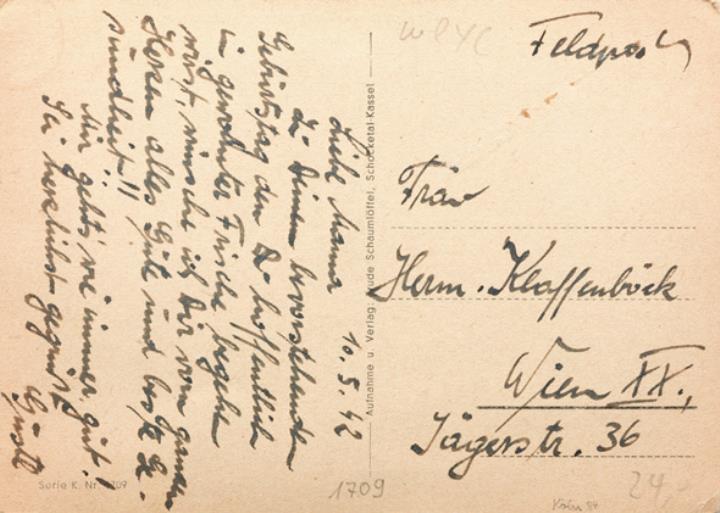 Liebe Mama 10.5.42
Zu Deinem bevorstehenden
Geburtstag den Du hoffentlich
in gewohnter Frische begehen
wirst, wünsche ich Dir von ganzem
Herzen alles Gute und beste Ge-
sundheit!!
Mir geht's wie immer gut.
Sei herzlichst gegrüßt
Gustl
Serie K. Nr. 1709
Aufnahme u. Verlag: Trude Schaumlöffel, Schocketal-Kassel
Feldpost
Frau
Herm. Klaffenböck
Wien XX.,
Jägerstr. 36
1709
Köln 84
24,-